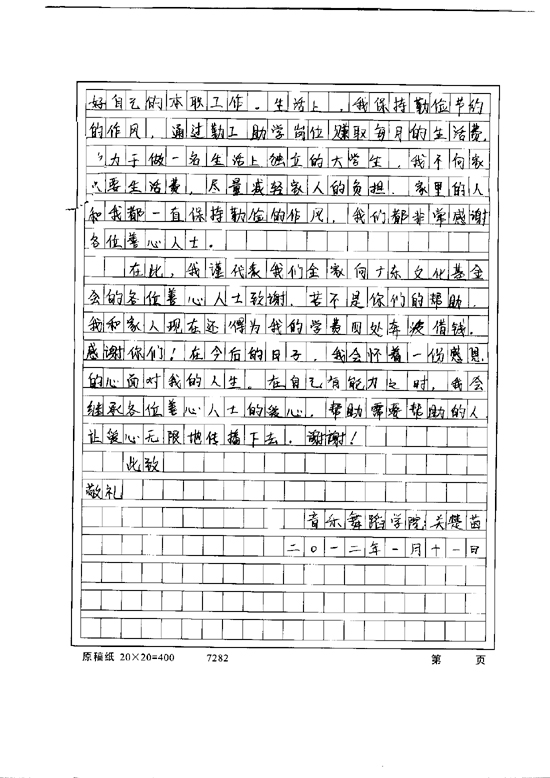 好自己的本职工作。生活上，我保持勤俭节约
的作风，通过勤工助学岗位赚取每月的生活费，
力于做一名生活上独立的大学生，我不向家
要生活费，尽量减轻家人的负担。家里的人
和我都一直保持勤俭的作风，我们都非常感谢
各位善心人士。
在此，我谨代表我们全家向广东文化基金
会的各位善心人士致谢。若不是你们的帮助，
我和家人现在还得为我的学费四处奔波借钱。
感谢你们！在今后的日子，我会怀着一份感恩
的心面对我的人生。在自己有能力之时，我会
继承各位善心人士的爱心，帮助需要帮助的人，
让爱心无限地传播下去。谢谢！
此致
敬礼
音乐舞蹈学院：关楚茵
二〇一二年一月十一日
原稿纸 20×20=400 7282 第 页